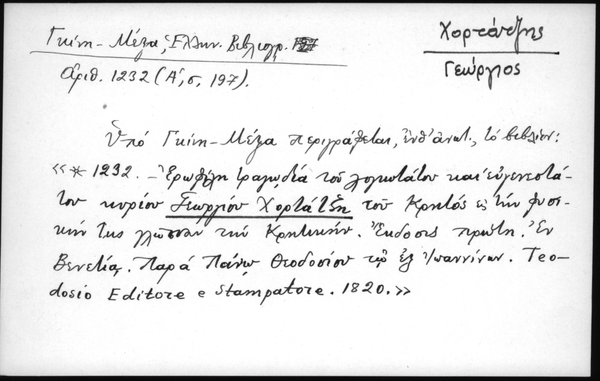 Γκίνη-Μέξα, Ἑλλην. Βιβλιογρ.
Χορτάτζης
Γεώργιος
ἀριθ. 1232 (Α΄, σ, 197).
Ὑπὸ Γκίνη-Μέξα περιγράφεται, ἐνθ' ἀνωτ., τὸ βιβλίον:
«* 1232. – Ἐρωφίλη τραγωδία τοῦ λογιωτάτου καὶ εὐγενεστά-
του κυρίου Γεωργίου Χορτάτζη τοῦ Κρητός εἰς τὴν φυσι-
κήν της γλῶσσαν τὴν Κρητικήν. Ἔκδοσις πρώτη. Ἐν
Βενετίᾳ. Παρὰ Πάνῳ Θεοδοσίου τῷ ἐξ Ἰωαννίνων. Teo-
dosio Editore e Stampatore. 1820.»